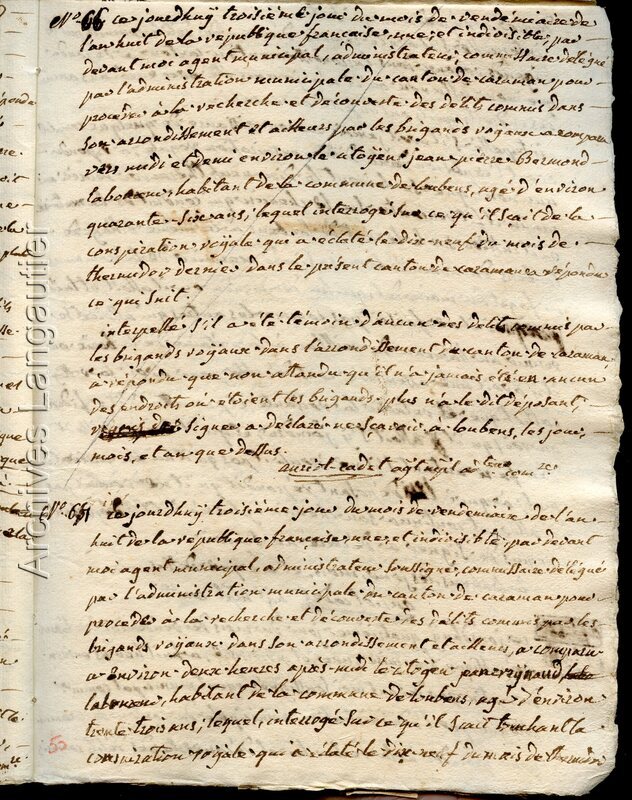 N.o 66 ce jourdhuy troisième jour du mois de vendemiaire de
l'an huit de la république francaise une et indivisible, par
devant moi agent municipal, administrateur, commissaire délégué
par l'administration municipale du canton de caraman pour
proceder à la recherche et découverte des délits commis dans
son arrondissement et ailleurs par les brigands royaux a comparu
vers midi et demi environ le citoyen jean pierre Bermond
laboureur habitant de la commune de loubens, agé d'environ
quarante six ans; lequel interrogé sur ce qu'il sçait de la
conspiration royale qui a éclaté le dix neuf du mois de
thermidor dernier dans le présent canton de caraman a répondu
ce qui suit.
interpellé s'il a été témoin d'aucun des delits commis par
les brigands royaux dans l'arrondissement du canton de caraman,
a répondu que non attandu qu'il n'a jamais été en aucun
des endroits où étoient les brigands plus n'a le dit déposant
signer a déclaré ne sçavoir, a loubens, les jour,
mois, et an que dessus.
auriol-cadet agt mpl com.re
N.o 67 ce jourdhuy troisième jour du mois de vendemiaire de l'an
huit de la république francaise une et indivisible, par devant
moi agent municipal, administrateur soussigné, commissaire délégué
par l'administration municipale du canton de caraman pour
proceder à la recherche et découverte des délits commis par les
brigands royaux dans son arrondissement et ailleurs, a comparu
a environ deux heures après-midi le citoyen jean
laboureur, habitant de la commune de loubens, agé d'environ
trente trois ans; lequel, interrogé sur ce qu'il sçait touchant la
conspiration royale qui a éclaté le dix neuf du mois de thermidor
55
Archives Langautier